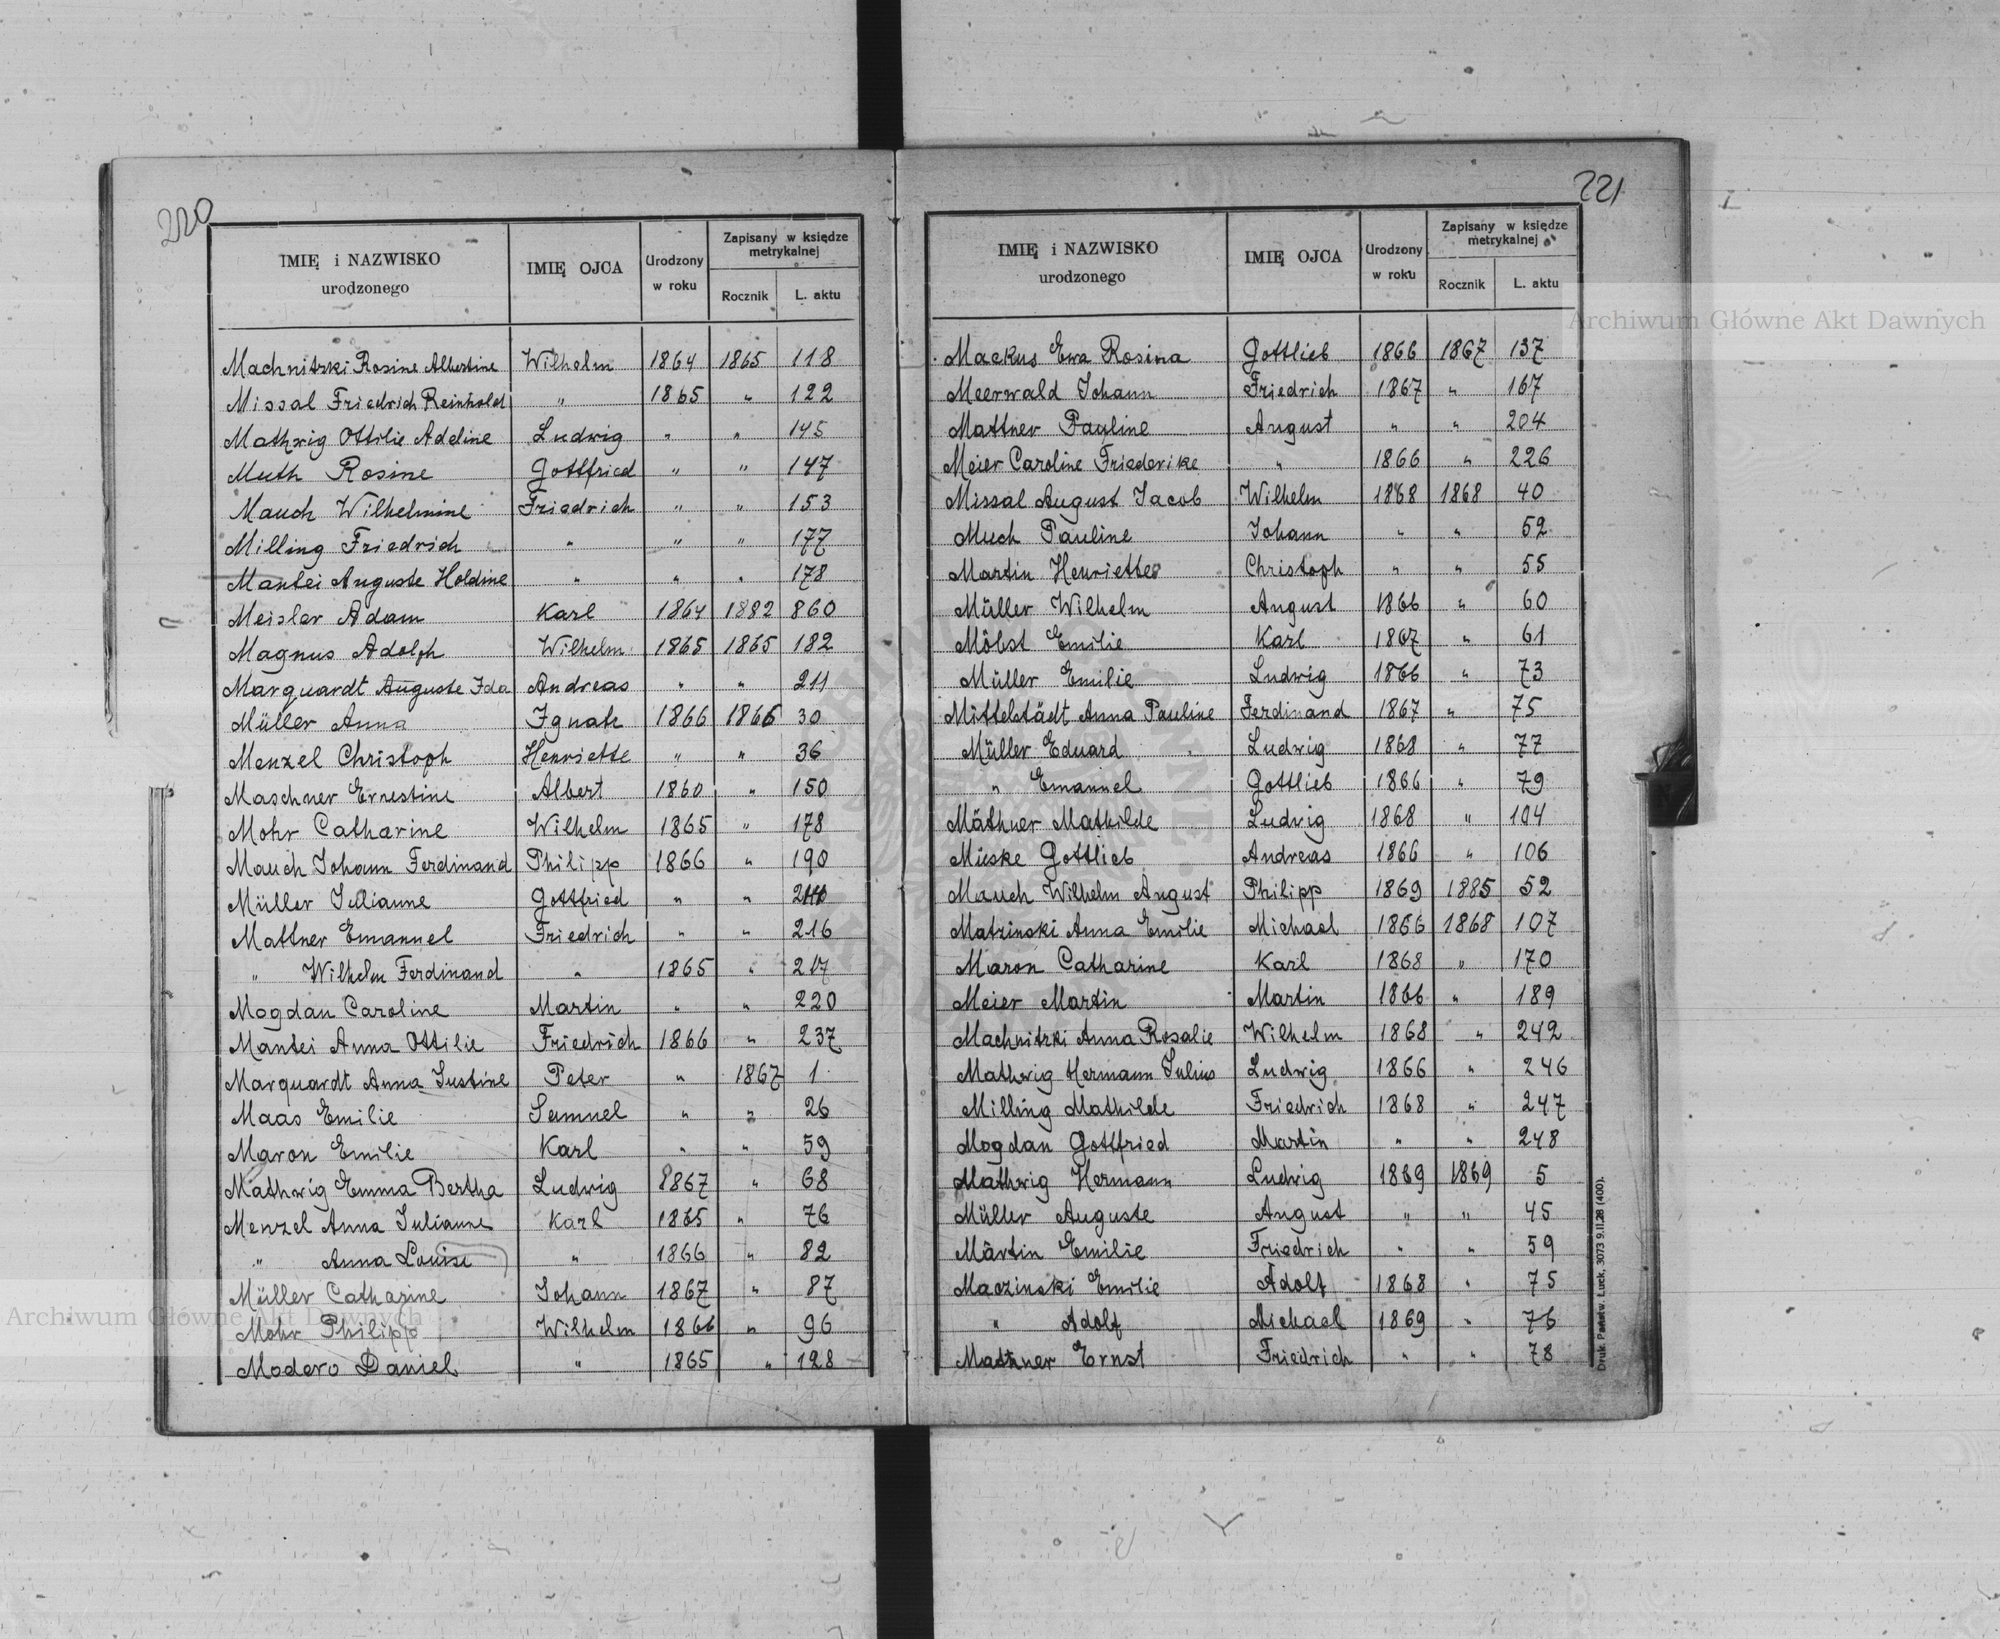 220
IMIĘ i NAZWISKO urodzonego IMIĘ OJCA Urodzony w roku Zapisany w księdze metrykalnej Rocznik L. aktu
Machnitzki Rosine Albertine Wilhelm 1864 1865 118
Missal Friedrich Reinhold " 1865 " 122
Mathwig Ottilie Adeline Ludwig " " 145
Muth Rosine Gottfried " " 147
Mauch Wilhelmine Friedrich " " 153
Milling Friedrich " " " 177
Mantei Auguste Holdine " " " 178
Meisler Adam Karl 1864 1882 860
Magnus Adolph Wilhelm 1865 1865 182
Marquardt Auguste Ida Andreas " " 211
Müller Anna Ignatz 1866 1866 30
Menzel Christoph Henriette " " 36
Maschner Ernestine Albert 1860 " 150
Mohr Catharine Wilhelm 1865 " 178
Mauch Johann Ferdinand Philipp 1866 " 190
Müller Julianne Gottfried " "
Mattner Emanuel Friedrich " " 216
" Wilhelm Ferdinand " 1865 " 217
Mogdan Caroline Martin " " 220
Mantei Anna Ottilie Friedrich 1866 " 237
Marquardt Anna Justine Peter " 1867 1
Maas Emilie Samuel " " 26
Maron Emilie Karl " " 59
Mathwig Emma Bertha Ludwig 1867 " 68
Menzel Anna Julianne Karl 1865 " 76
" Anna Louise " 1866 " 82
Müller Catharine Johann 1867 " 87
Mohr Philipp Wilhelm 1866 " 96
Modero Daniel " 1865 " 128
221
IMIĘ i NAZWISKO urodzonego IMIĘ OJCA Urodzony w roku Zapisany w księdze metrykalnej Rocznik L. aktu
Mackus Ewa Rosina Gottlieb 1866 1867 137
Meerwald Johann Friedrich 1867 " 167
Mattner Pauline August " " 204
Meier Caroline Friederike " 1866 " 226
Missal August Jacob Wilhelm 1868 1868 40
Much Pauline Johann " " 52
Martin Henriette Christoph " " 55
Müller Wilhelm August 1866 " 60
Möbst Emilie Karl 1867 " 61
Müller Emilie Ludwig 1866 " 73
Mittelstädt Anna Pauline Ferdinand 1867 " 75
Müller Eduard Ludwig 1868 " 77
" Emanuel Gottlieb 1866 " 79
Mäthner Mathilde Ludwig 1868 " 104
Mieske Gottlieb Andreas 1866 " 106
Mauch Wilhelm August Philipp 1869 1885 52
Matzinski Anna Emilie Michael 1866 1868 107
Maron Catharine Karl 1868 " 170
Meier Martin Martin 1866 " 189
Machnitzki Anna Rosalie Wilhelm 1868 " 242
Mathwig Hermann Julius Ludwig 1866 " 246
Milling Mathilde Friedrich 1868 " 247
Mogdan Gottfried Martin " " 248
Mathwig Hermann Ludwig 1869 1869 5
Müller Auguste August " " 45
Martin Emilie Friedrich " " 59
Maczinski Emilie Adolf 1868 " 75
" Adolf Michael 1869 " 76
Mathner Ernst Friedrich " " 78
Druk. Państw. Łuck, 3073 9.II.28 (400).
Archiwum Główne Akt Dawnych
Archiwum Główne Akt Dawnych